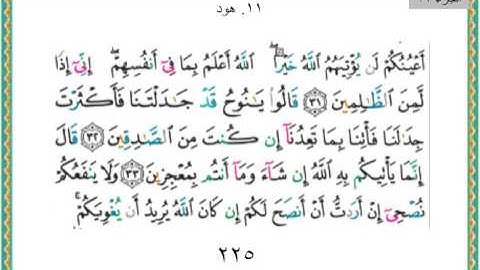 ١١. هود
أَعْيُنُكُمْ لَن يُؤْتِيَهُمُ ٱللَّهُ خَيْرًا ۖ ٱللَّهُ أَعْلَمُ بِمَا فِىٓ أَنفُسِهِمْ ۖ إِنِّىٓ إِذًا
لَّمِنَ ٱلظَّـٰلِمِينَ ٣١ قَالُوا۟ يَـٰنُوحُ قَدْ جَـٰدَلْتَنَا فَأَكْثَرْتَ
جِدَٰلَنَا فَأْتِنَا بِمَا تَعِدُنَآ إِن كُنتَ مِنَ ٱلصَّـٰدِقِينَ ٣٢ قَالَ
إِنَّمَا يَأْتِيكُم بِهِ ٱللَّهُ إِن شَآءَ وَمَآ أَنتُم بِمُعْجِزِينَ ٣٣ وَلَا يَنفَعُكُمْ
نُصْحِىٓ إِنْ أَرَدتُّ أَنْ أَنصَحَ لَكُمْ إِن كَانَ ٱللَّهُ يُرِيدُ أَن يُغْوِيَكُمْ ۚ
٢٢٥